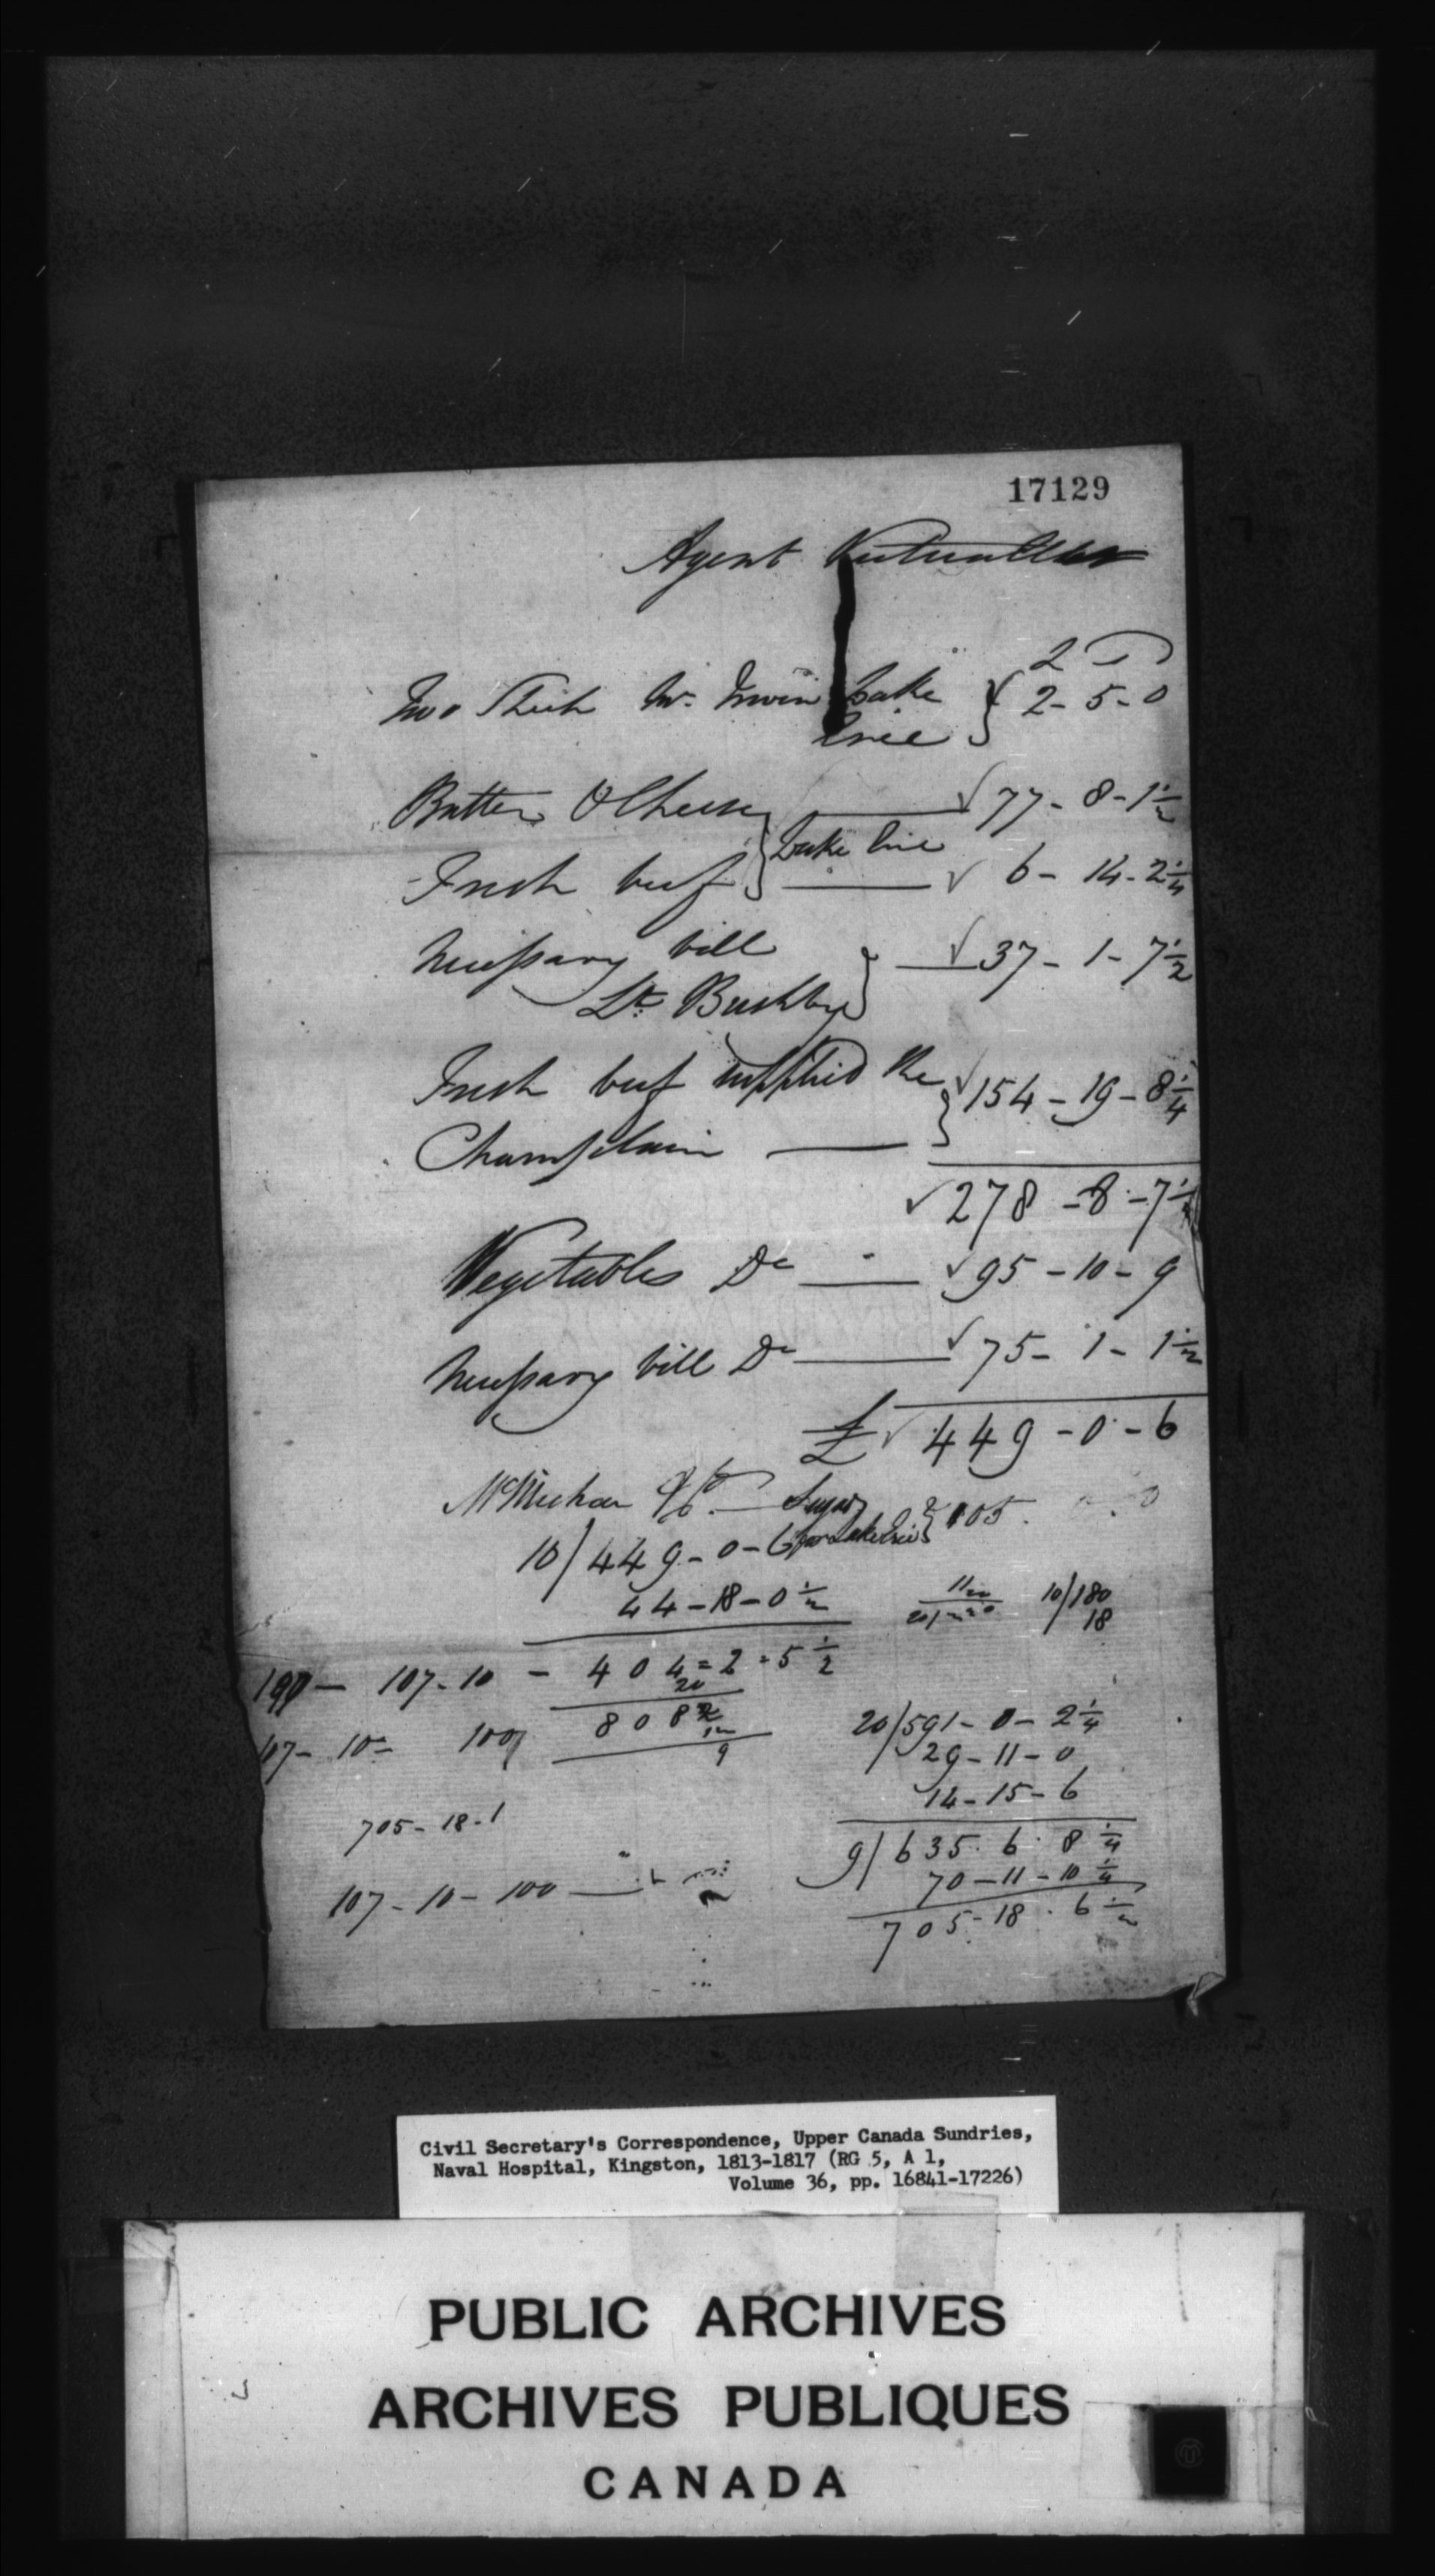 17129
Agent Victualler
2
Two Mr. Irwin Lake
Erie } √ 2 - 5 - 0
Butter & Cheese } √ 77 - 8 - 1 1/2
Lake Erie
Fresh beef } √ 6 - 14 - 2 1/4
Necessary bill
Lt. Bushby } √ 37 - 1 - 7 1/2
Fresh beef supplied the
Champlain } √ 154 - 19 - 8 1/4
√ 278 - 8 - 7 1/2
Vegetables Do √ 95 - 10 - 9
Necessary bill Do √ 75 - 1 - 1 1/2
£ √ 449 - 0 - 6
& Co. Sugar
for Lake Erie } 105 . 0
10/449 - 0 - 6
44 - 18 - 0 1/2
10/180
18
190 - 107 - 10 - 404 = 2 = 5 1/2
20
107 - 10 = 100 808
9
20/591 - 0 - 2 1/4
29 - 11 - 0
14 - 15 - 6
705 - 18 - 1
9/635 . 6 . 8 1/4
70 - 11 - 10 1/4
107 - 10 - 100
705 - 18 . 6 1/2
Civil Secretary's Correspondence, Upper Canada Sundries,
Naval Hospital, Kingston, 1813-1817 (RG 5, A 1,
Volume 36, pp. 16841-17226)
PUBLIC ARCHIVES
ARCHIVES PUBLIQUES
CANADA